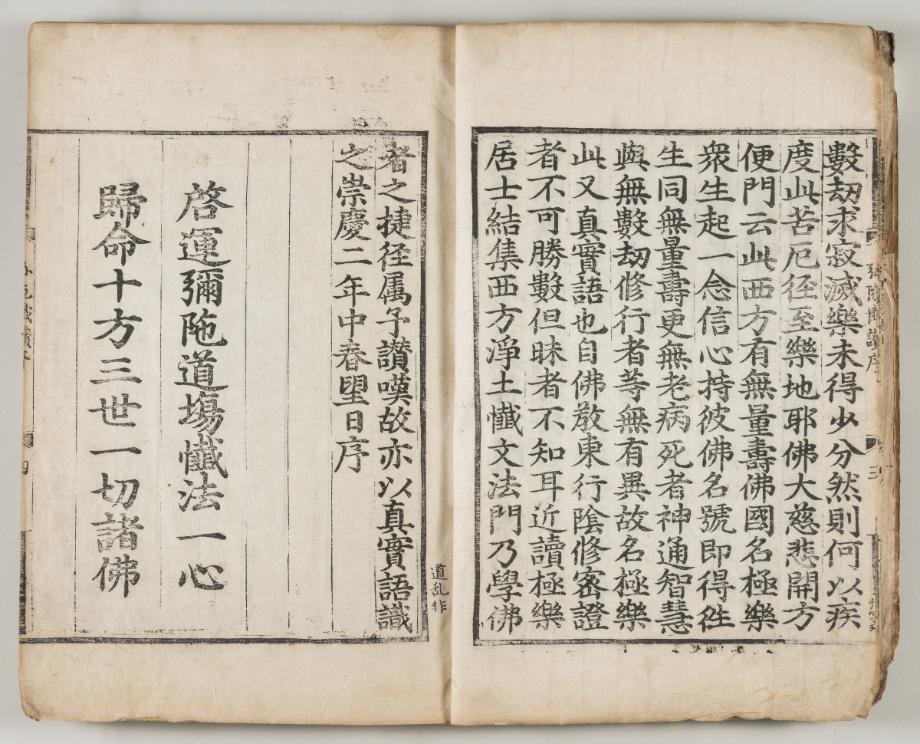 數劫求寂滅樂未得少分然則何以疾
度此苦厄径至樂地耶佛大慈悲開方
便門云此西方有無量壽佛國名極樂
衆生起一念信心持彼佛名號即得徃
生同無量壽更無老病死者神通智慧
與無數劫修行者等無有異故名極樂
此又真實語也自佛教東行陰修密證
者不可勝數但昧者不知耳近讀極樂
居士結集西方淨土懴文法門乃學佛
者之捷径属予讃嘆故亦以真實語識
之崇慶二年中春望日序
啓運彌陁道塲懴法一心
歸命十方三世一切諸佛
四